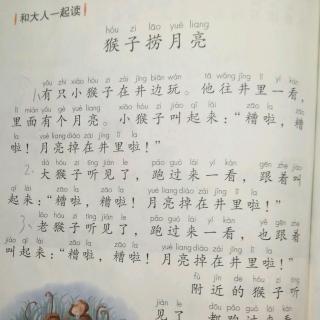 和大人一起读
hóu zi lāo yuè liang
猴子捞月亮
yǒu zhī xiǎo hóu zi zài jǐng biān wán tā wǎng jǐng lǐ yí kàn
1、有只小猴子在井边玩。他往井里一看，
lǐ miàn yǒu gè yuè liang xiǎo hóu zi jiào qǐ lái zāo la zāo
里面有个月亮。小猴子叫起来：“糟啦，糟
la yuè liang diào zài jǐng lǐ la
啦！月亮掉在井里啦！”
dà hóu zi tīng jiàn le pǎo guò lái yí kàn gēn zhe jiào
2、大猴子听见了，跑过来一看，跟着叫
qǐ lái zāo la zāo la yuè liang diào zài jǐng lǐ la
起来：“糟啦，糟啦！月亮掉在井里啦！”
lǎo hóu zi tīng jiàn le pǎo guò lái yí kàn yě gēn zhe
3、老猴子听见了，跑过来一看，也跟着
jiào qǐ lái zāo la zāo la yuè liang diào zài jǐng lǐ la
叫起来：“糟啦，糟啦！月亮掉在井里啦！”
fù jìn de hóu zi tīng
附近的猴子听
jiàn le dōu pǎo guò lái kàn
见了，都跑过来看